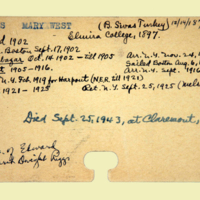 S MARY WEST (B. Sivas Turkey) 10/14/5
Elmira College, 1897.
d 1902
Boston Sept. 17, 1902
Oct. 14, 1902 - till 1905 Arr. N.Y. Nov. 24,
1905-1916. Sailed Boston Aug. 6,
Arr. N.Y. Sept. 1916
N.Y. Feb. 1919 for Harpoot (N.E.R. till 1921)
1921 - 1925 Ret. N.Y. Sept. 25, 1925
Died Sept. 25, 1943, at Claremont,
of Edward
Dwight Riggs